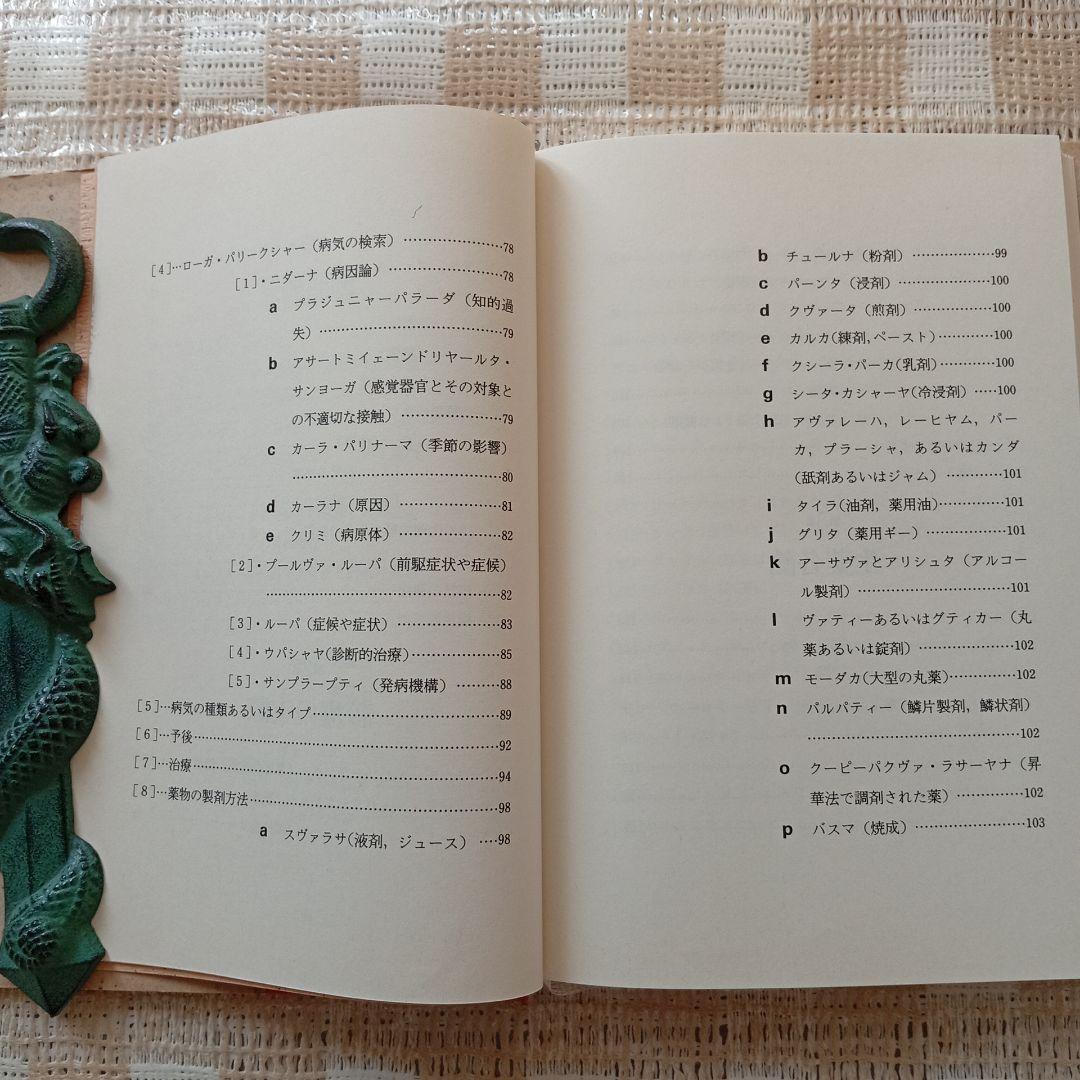 [4]…ローガ・パリークシャー（病気の検索）…………………78
[1]・ニダーナ（病因論）……………………78
a プラジュニャーパラーダ（知的過
失）………………………………79
b アサートミイェーンドリヤールタ・
サンヨーガ（感覚器官とその対象と
の不適切な接触）…………………79
c カーラ・パリナーマ（季節の影響）
……………………………………80
d カーラナ（原因）……………………81
e クリミ（病原体）……………………82
[2]・プールヴァ・ルーパ（前駆症状や症候）
…………………………………………82
[3]・ルーパ（症候や症状）…………………83
[4]・ウパシャヤ(診断的治療)………………85
[5]・サンプラープティ（発病機構）………88
[5]…病気の種類あるいはタイプ………………………………89
[6]…予後……………………………………………………92
[7]…治療……………………………………………………94
[8]…薬物の製剤方法…………………………………………98
a スヴァラサ(液剤，ジュース）….98
b チュールナ（粉剤）………………99
c パーンタ（浸剤）…………………100
d クヴァータ（煎剤）………………100
e カルカ(練剤,ペースト)……………100
f クシーラ・パーカ(乳剤)…………100
g シータ・カシャーヤ(冷浸剤）…..100
h アヴァレーハ，レーヒヤム，パー
カ，プラーシャ，あるいはカンダ
（舐剤あるいはジャム）…………101
i タイラ(油剤，薬用油)……………101
j グリタ（薬用ギー）………………101
k アーサヴァとアリシュタ（アルコー
ル製剤）……………………………101
l ヴァティーあるいはグティカー（丸
薬あるいは錠剤）…………………102
m モーダカ(大型の丸薬)……………102
n パルパティー（鱗片製剤，鱗状剤）
………………………………………102
o クーピーパクヴァ・ラサーヤナ（昇
華法で調剤された薬）……………102
p バスマ（焼成）……………………103